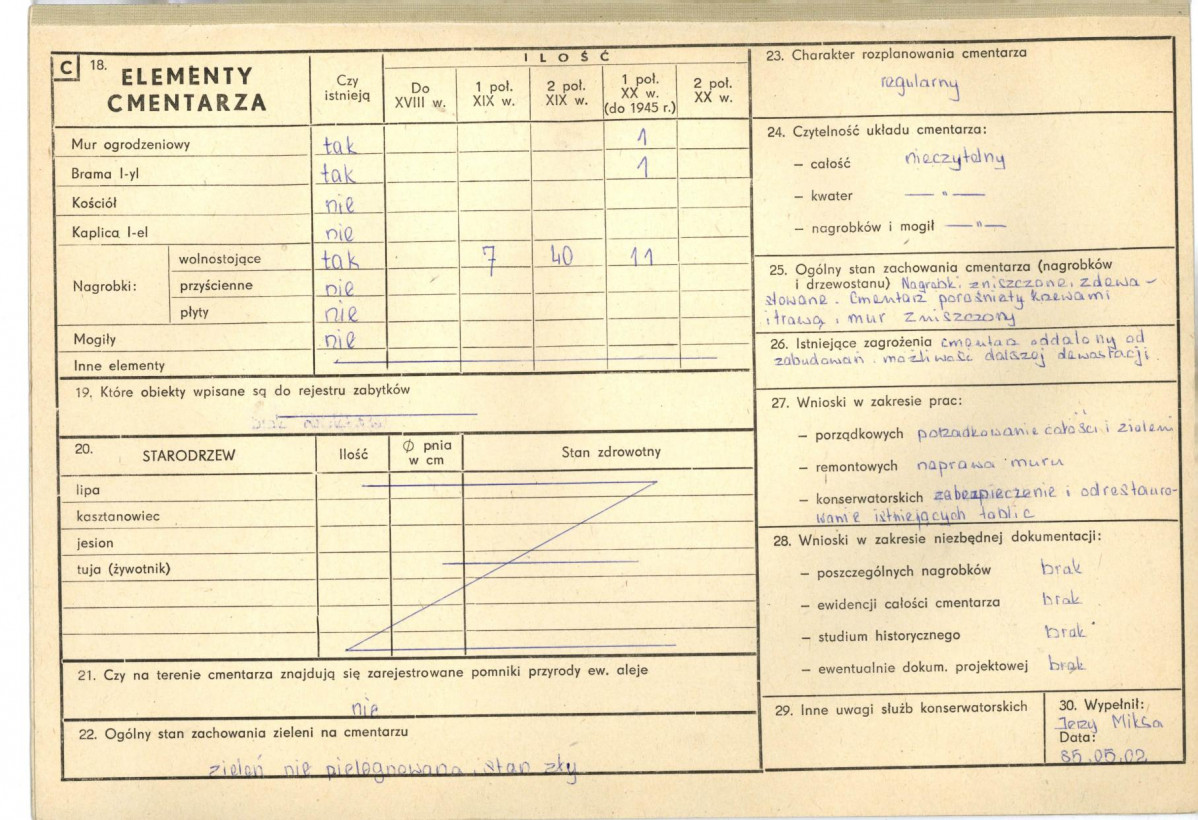 C 18. ELEMENTY CMENTARZA
Czy istnieją
ILOŚĆ
Do XVIII w.
1 poł. XIX w.
2 poł. XIX w.
1 poł. XX w. (do 1945 r.)
2 poł. XX w.
Mur ogrodzeniowy tak 1
Brama I-yl tak 1
Kościół nie
Kaplica I-el nie
Nagrobki:
wolnostojące tak 7 40 11
przyścienne nie
płyty nie
Mogiły nie
Inne elementy
19. Które obiekty wpisane są do rejestru zabytków
20. STARODRZEW
Ilość
Ø pnia w cm
Stan zdrowotny
lipa
kasztanowiec
jesion
tuja (żywotnik)
21. Czy na terenie cmentarza znajdują się zarejestrowane pomniki przyrody ew. aleje
nie
22. Ogólny stan zachowania zieleni na cmentarzu
zieleń nie pielęgnowana, stan zły
23. Charakter rozplanowania cmentarza
regularny
24. Czytelność układu cmentarza:
— całość nieczytelny
— kwater — " —
— nagrobków i mogił — " —
25. Ogólny stan zachowania cmentarza (nagrobków
i drzewostanu) Nagrobki zniszczone, zdewa-
stowane. Cmentarz porośnięty krzewami
i trawą, mur zniszczony
26. Istniejące zagrożenia cmentarz oddalony od
zabudowań, możliwość dalszej dewastacji.
27. Wnioski w zakresie prac:
— porządkowych porządkowanie całości i zieleni
— remontowych naprawa muru
— konserwatorskich zabezpieczenie i odrestauro-
wanie istniejących tablic
28. Wnioski w zakresie niezbędnej dokumentacji:
— poszczególnych nagrobków brak
— ewidencji całości cmentarza brak
— studium historycznego brak
— ewentualnie dokum. projektowej brak
29. Inne uwagi służb konserwatorskich
30. Wypełnił:
Jerzy Miksa
Data:
85.05.02